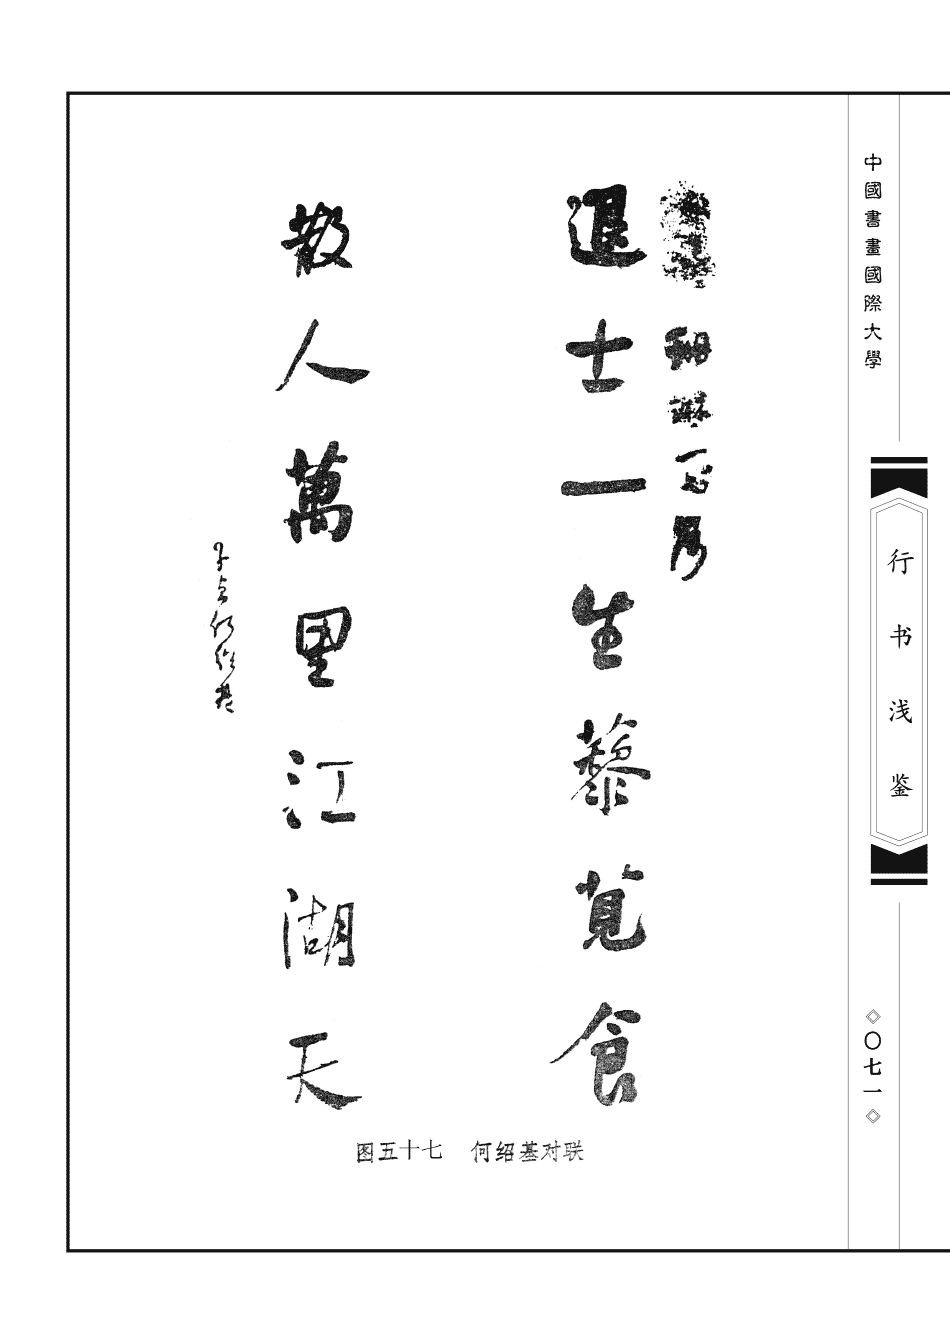 中國書畫國際大學
行书浅鉴
〇七一
退士一生藜莧食
散人萬里江湖天
子貞何紹基
图五十七　何绍基对联